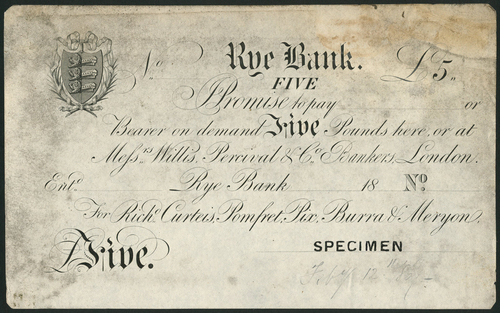 No. Rye Bank. £5„
FIVE
I Promise to pay or
Bearer on demand Five Pounds here, or at
Messrs. Willis, Percival & Co. Bankers, London.
Entd. Rye Bank 18 No.
For Richd. Curteis, Pomfret, Pix, Burra & Meryon.
Five.
SPECIMEN
Feby 12